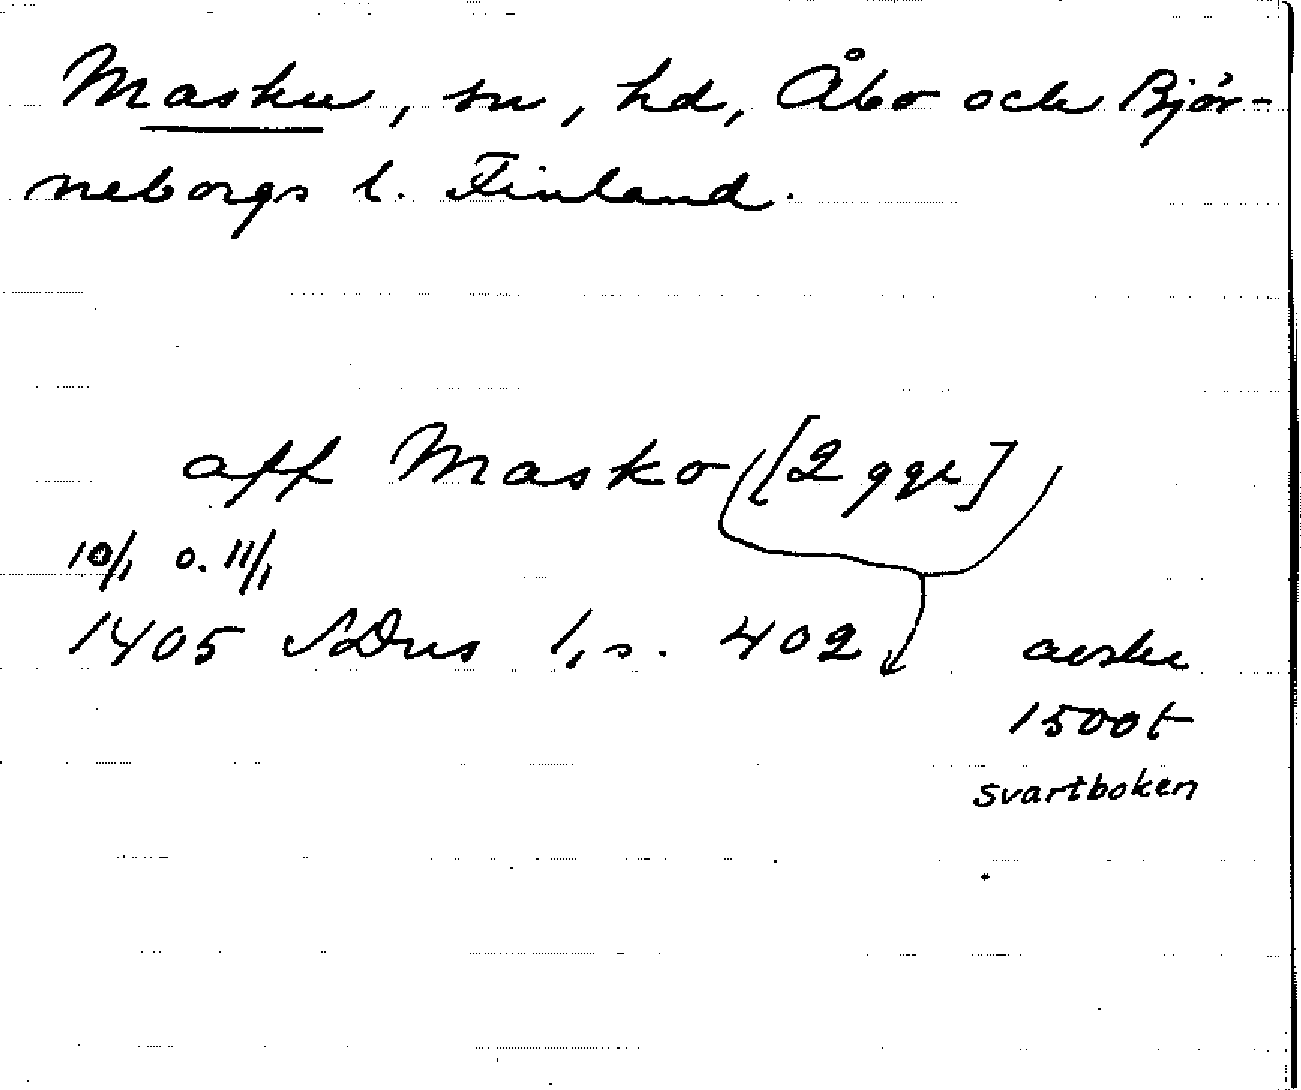 Masku, sn, hd, Åbo och Björ-
neborgs l. Finland.
aff Masko [2 ggr]
10/1 o. 11/1
1405 SDns 1, s. 402 avskr
1500t
svartboken